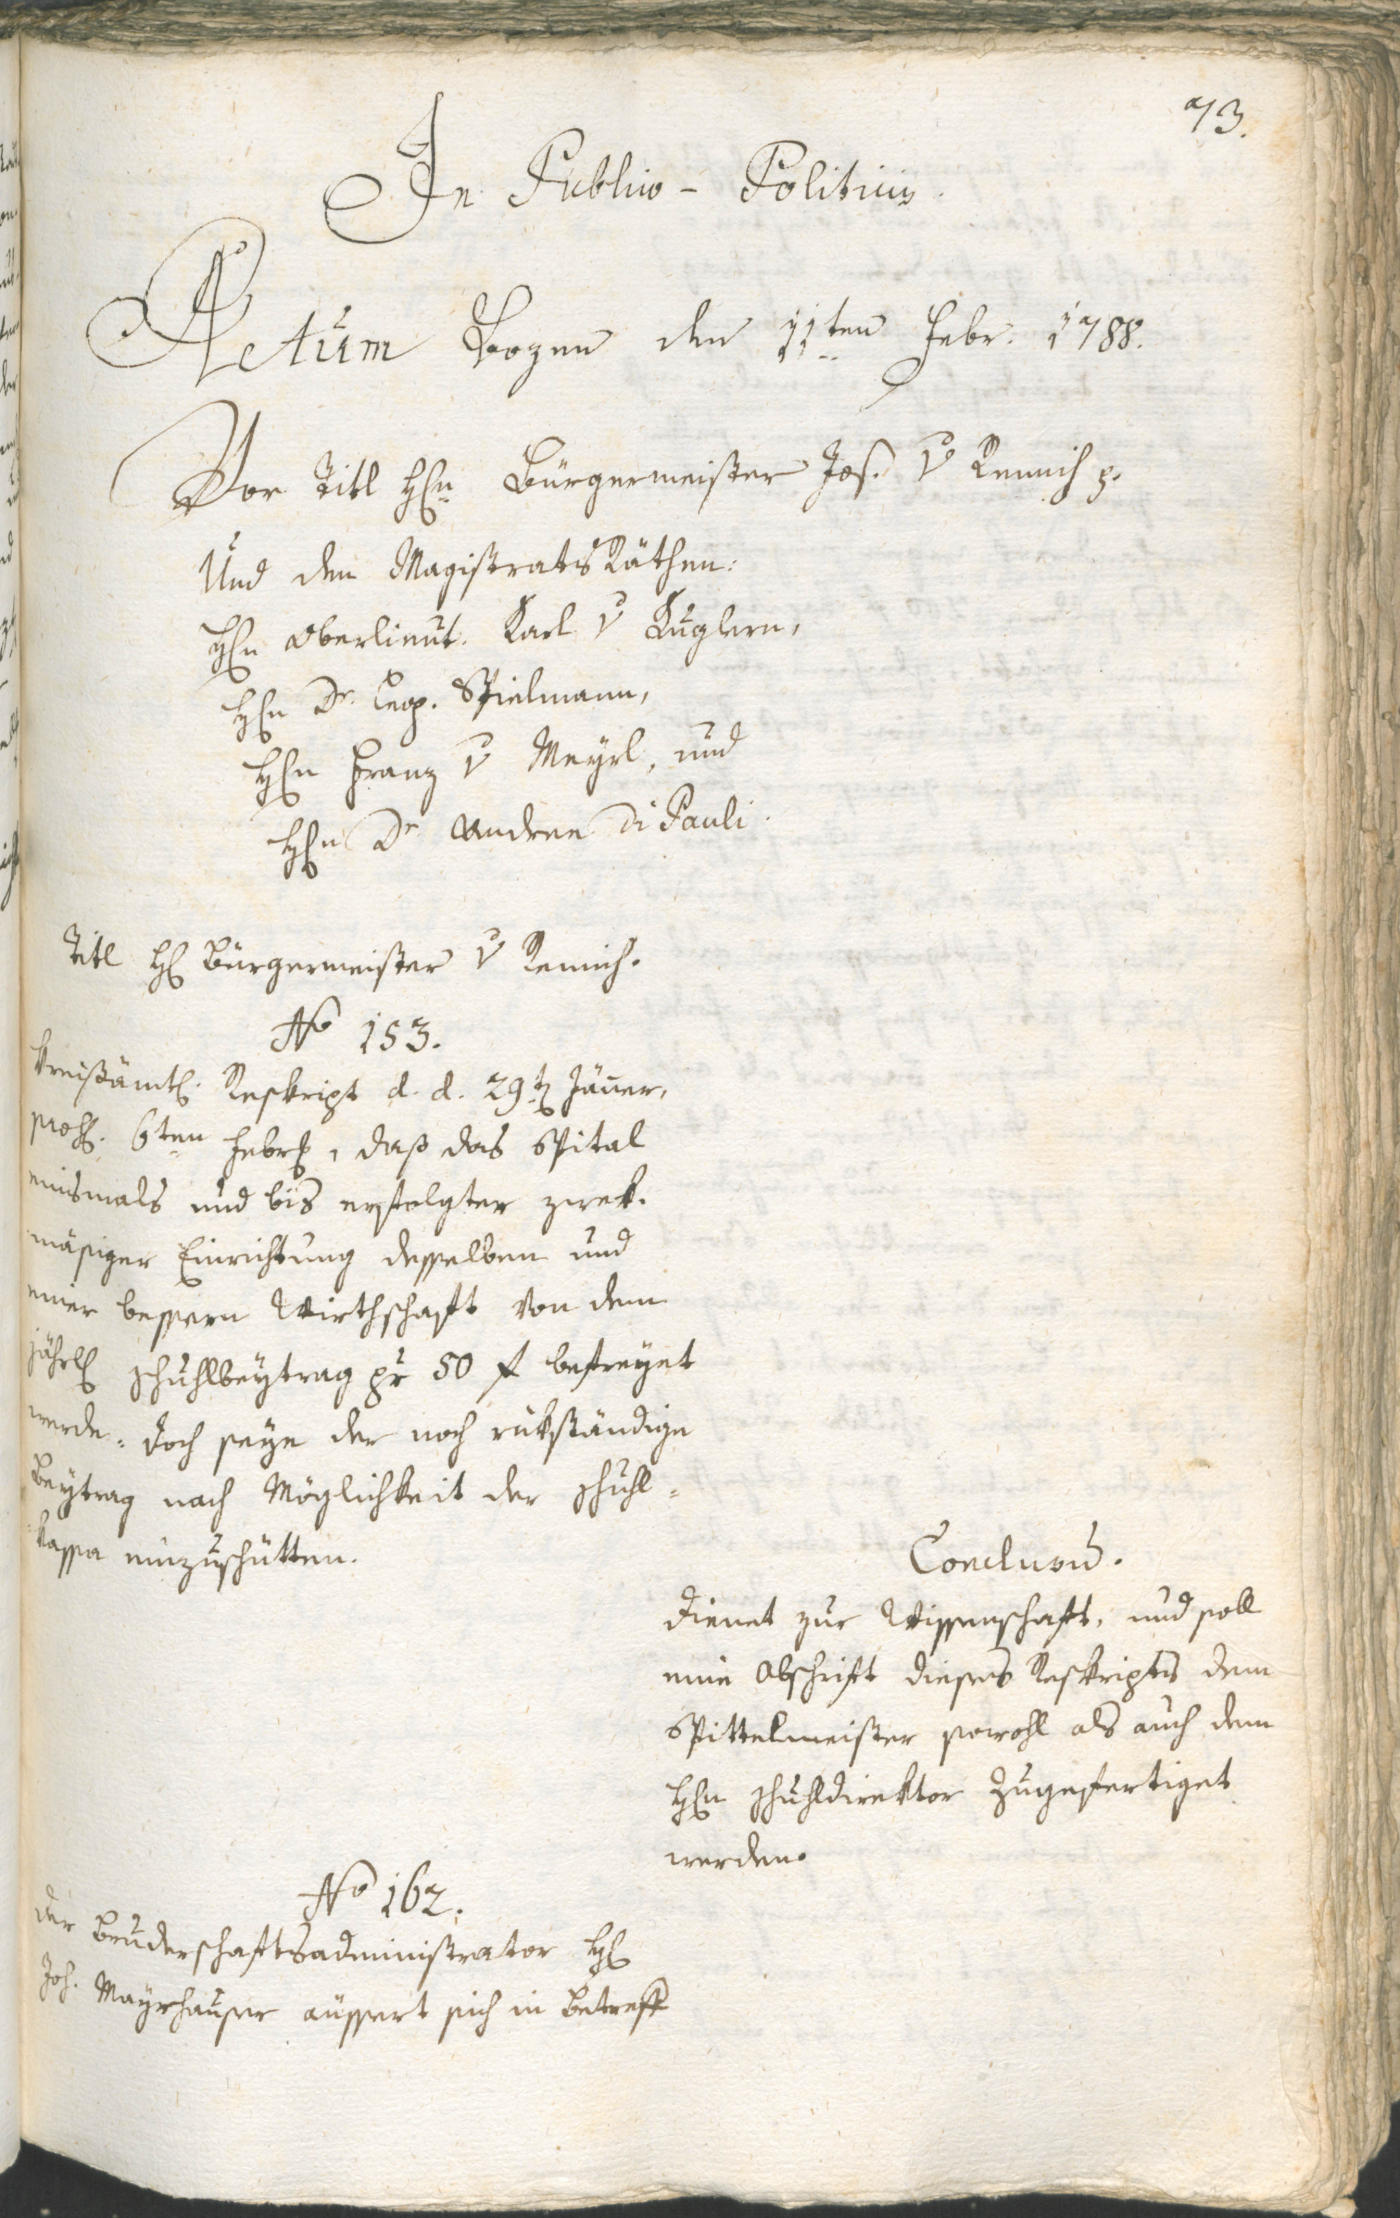 73.
In Publico - Politicis.
Actum Bozen den 11ten Febr. 1788.
Vor Titl Hℓn Bürgermeister Jos. v Remich p.
Und den Magistrats Räthen:
Hℓn Oberlieut. Karl v Kuglern,
Hℓn Dr. Leop. Spielmann,
Hℓn Franz v Meyrl, und
Hℓn Dr Andree Di Pauli.
Titl Hℓ Bürgermeister v Remich.
No 153.
Kreißämtℓ. Reskript d. d. 29tℓ Jäner,
præs. 6ten Febrℓ, daß das Spital
einsmals und bis erfolgter zwek-
mäsiger Einrichtung desselben und
einer bessern Wirthschaft von dem
jährlℓ Schuhlbeytrag pr 50 f befreyet
werde. Doch seye der noch rükständige
Beytrag nach Möglichkeit der Schuhl-
kassa einzuschütten.
Conclusū.
Dienet zur Wissenschaft, und soll
eine Abschrift dieses Reskripts dem
Spittelmeister sowohl als auch dem
Hℓn Schuhldirektor zugefertiget
werden.
No 162.
Der Bruderschaftsadministrator Hℓ
Joh. Mayrhauser äussert sich in Betreff